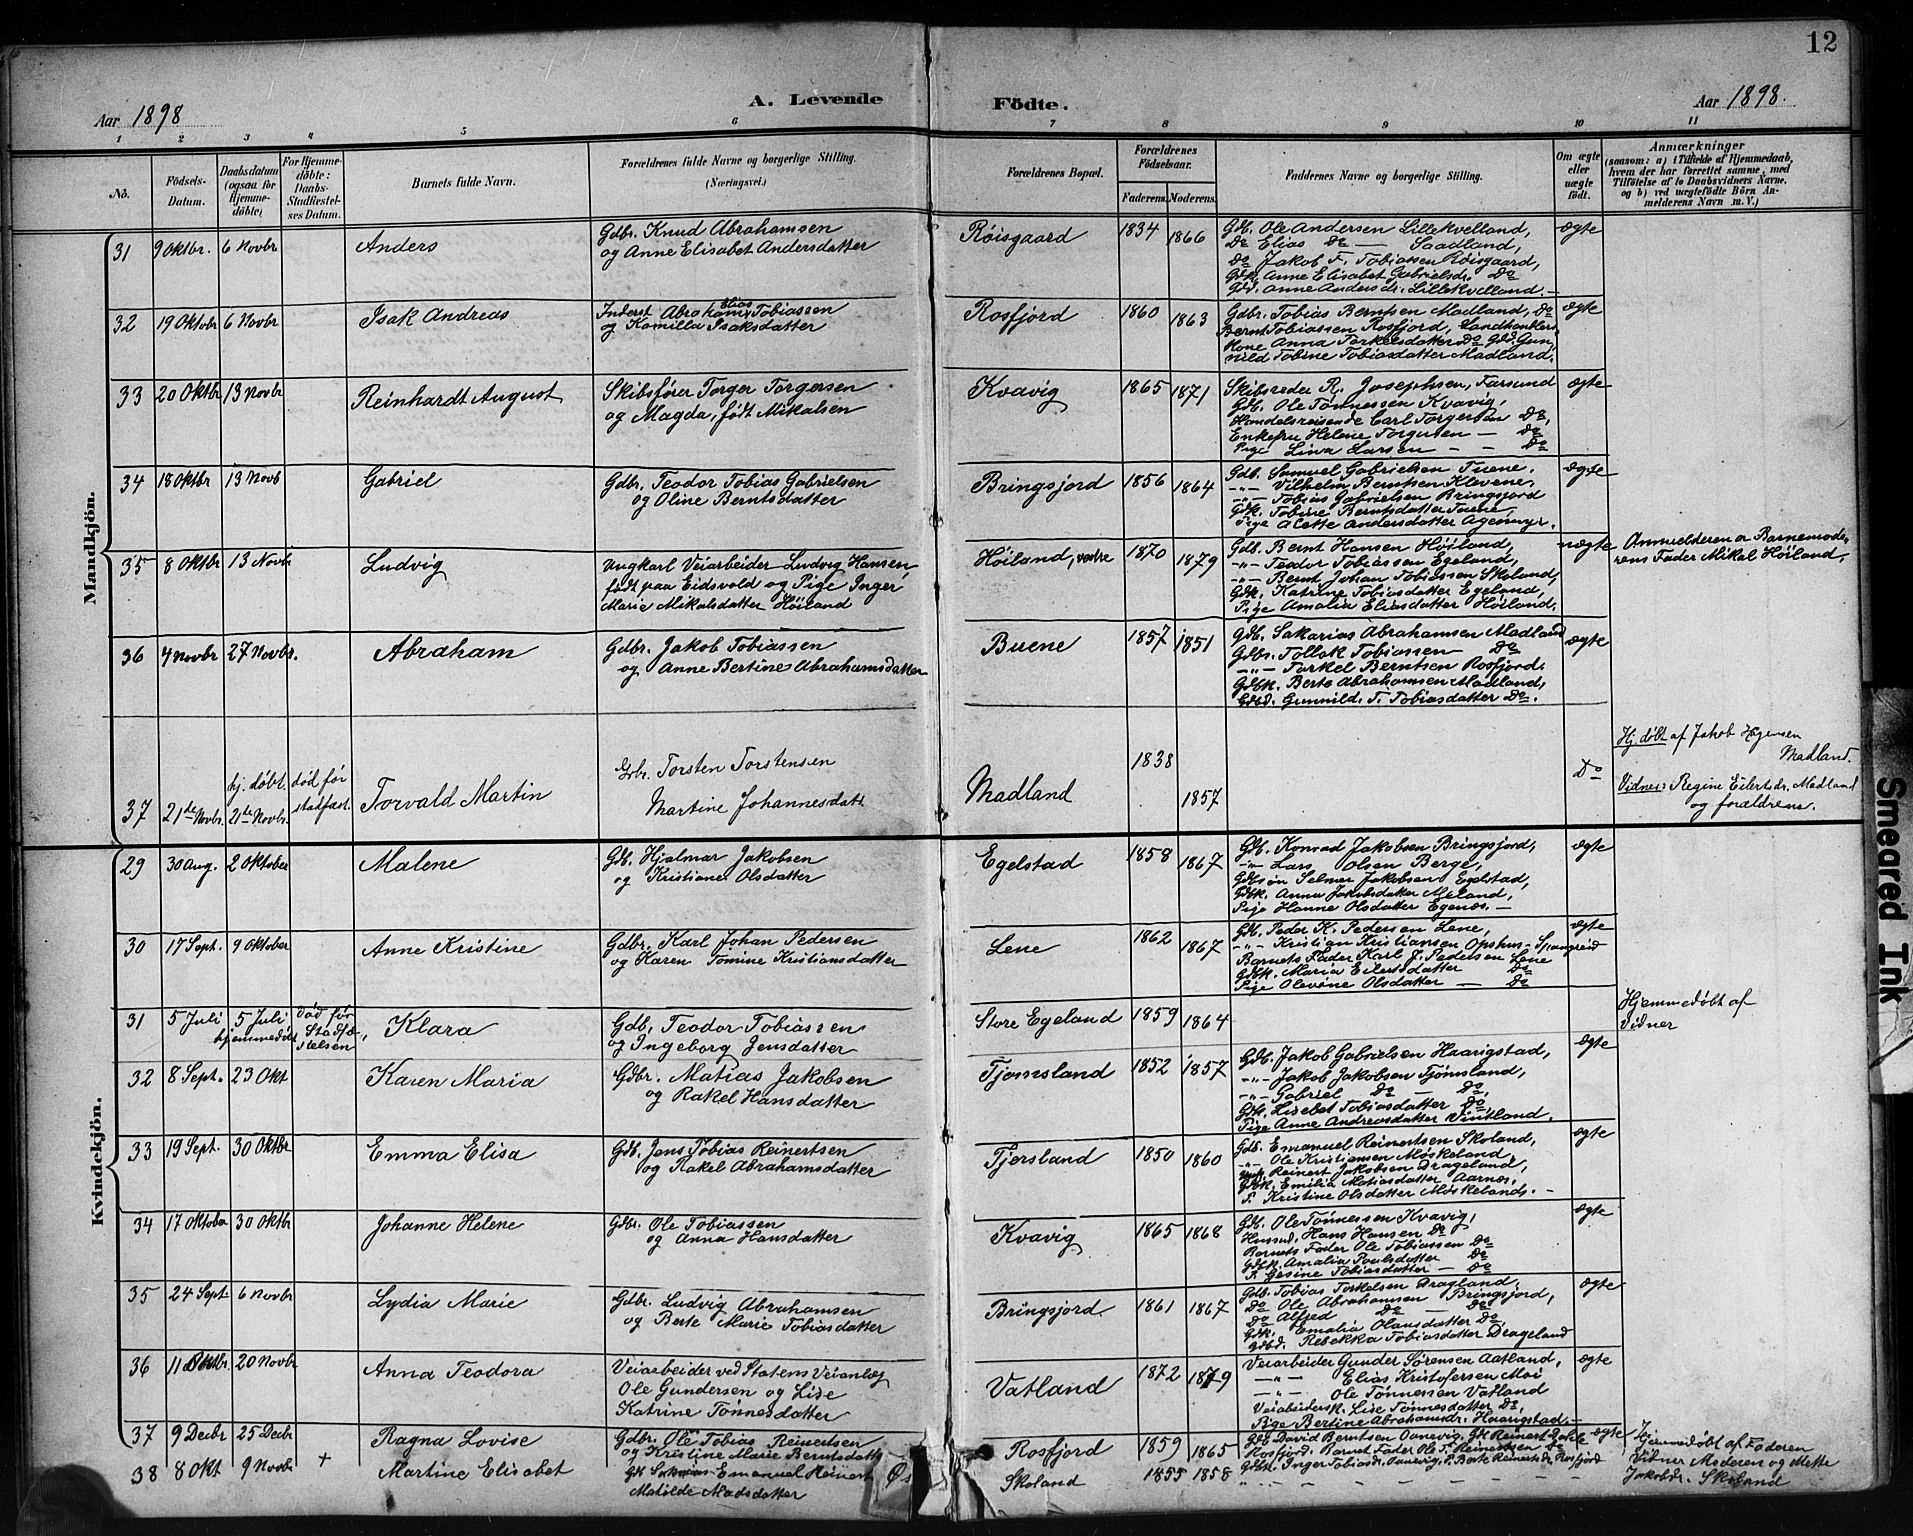 12
Aar 1898
A. Levende
Födte.
Aar 1898.
1 2 3 4 5 6 7 8 9 10 11
No.
Födsels-
Datum.
Daabsdatum
(ogsaa for
Hjemme-
döbte)
For Hjemme-
döbte:
Daabs-
Stadfæstel-
ses Datum.
Barnets fulde Navn.
Forældrenes fulde Navne og borgerlige Stilling.
(Næringsvei.)
Forældrenes Bopæl.
Forældrenes
Födselsaar.
Faderens. Moderens.
Faddernes Navne og borgerlige Stilling.
Om ægte
eller
uægte
födt.
Anmærkninger
(saasom: a) i Tilfælde af Hjemmedaab,
hvem der har forrettet samme, med
Tilföielse af to Daabsvidners Navne,
og b) ved uægtefödte Börn An-
melderens Navn m. V.)
Mandkjön.
31 9 Oktbr. 6 Novbr Anders
Gdbr. Knud Abrahamsen
og Anne Elisabet Andersdatter
Røisgaard 1834 1866
Gdb. Ole Andersen Lillekvelland,
Do Elias Do — Saadland,
Do Jakob F. Tobiassen Røisgaard,
Gdk. Anne Elisabet Gabrielsdr. Do
Gdd. Anne Andersdr. Lillekvelland. —
ægte
32 19 Oktobr 6 Novbr Isak Andreas
Inderst Abraham Elias Tobiassen
og Kamilla Isaksdatter
Rosfjord 1860 1863
Gdbr. Tobias Berntsen Madland, Do
Bernt Tobiassen Rosfjord, Landhandlers
Kone Anna Torkelsdatter Do Gdd. Gun,
nild Tobine Tobiasdatter Madland.
ægte
33 20 Oktbr 13 Novbr Reinhardt August
Skibsfører Torger Torgersen
og Magda, født Mikalsen
Kvavig 1865 1871
Skibsreder R. Josephsen, Farsund
Gdb. Ole Tønnessen Kvavig,
Handelsreisende Carl Torgersen Do,
Enkefru Helene Torgersen — Do
Pige Lina Larsen — — Do
ægte
34 18 Oktbr 13 Novb Gabriel
Gdbr. Teodor Tobias Gabrielsen
og Oline Berntsdatter
Bringsjord 1856 1864
Gdb. Samuel Gabrielsen Tuene.
-"- Vilhelm Berntsen Klevene,
-"- Tobias Gabrielsen Bringsjord
Gdk. Tobine Berntsdatter Tuene,
Pige Alette Andersdatter Agenmyr.
ægte
35 8 Oktbr 13 Novbr Ludvig
Ungkarl Veiarbeider Ludvig Hansen,
født paa Eidsvold og Pige Inger
Marie Mikalsdatter Høiland
Høiland, vestre 1870 1879
Gdb. Bernt Hansen Høiland,
-"- Teodor Tobiassen Egeland,
-"- Bernt Johan Tobiassen Skoland,
Gdk. Katrine Tobiasdatter Egeland,
Pige Amalia Eliasdatter Høiland.
uægte
Anmelderen er Barnemode,
rens Fader Mikal Høiland,
36 4 Novbr 27 Novbr. Abraham
Gdbr. Jakob Tobiassen
og Anne Bertine Abrahamsdatter
Buene 1857 1851
Gdb. Sakarias Abrahamsen Madland
Gdbs. Tollak Tobiassen — Do
-"- Torkel Berntsen Rosfjord.
Gdbk. Berte Abrahamsen Madland,
Gdbd. Gunnild. T. Tobiasdatter Do.
ægte
37 21de Novbr. hj. døbt. 21de Novbr. død før stadfæst. Torvald Martin
Gdbr. Torsten Torstensen
Martine Johannesdatt.
Madland 1838 1857
Do
Hj. døbt af Jakob
Madland.
Vidner: Regine Eilertsdr. Madland
og forældrene.
Kvindekjön.
29 30 Aug. 2 Oktober Malene
Gdb. Hjalmar Jakobsen
og Kristiane Olsdatter
Egelstad 1858 1867
Gdb. Konrad Jakobsen Bringsjord,
-"- Lars Olsen Berge,
Gdbsøn Selmer Jakobsen Egelstad,
Gdbk. Anna Jakobsdatter Meland,
Pige Hanne Olsdatter Egenæs. —
ægte
30 17 Sept. 9 Oktober Anne Kristine
Gdbr. Karl Johan Pedersen
og Karen Tomine Kristiansdatter
Lene 1862 1867
Gdb. Peder K. Pedersen Lene,
-"- Kristian Kristiansen Opshus - Spangreid
Barnets Fader Karl J. Pedersen Lene
Gdbk. Maria Eilertsdatter Do
Pige Olevine Olsdatter — Do
ægte
31 5 Juli 5 Juli hjemmedøbt død før Stadfæ, stelsen Klara
Gdb. Teodor Tobiassen
og Ingeborg Jensdatter
Store Egeland 1859 1864
Hjemmedøbt af
Vidner
32 8 Sept. 23 Okt Karen Maria
Gdbr. Matias Jakobsen
og Rakel Hansdatter
Tjomsland 1852 1857
Gdb. Jakob Gabrielsen Haarigstad,
-"- Jakob Jakobsen Tjømsland,
-"- Gabriel Do — Do,
Gdk. Lisebet Tobiasdatter Do
Pige Anne Andreasdatter Vintland.
ægte
33 19 Sept. 30 Oktbr Emma Elisa
Gdb. Jens Tobias Reinertsen
og Rakel Abrahamsdatter
Tjersland 1850 1860
Gdb. Emmanuel Reinertsen Skoland,
-"- Ole Kristiansen Møskeland,
Reinert Jakobsen Drageland,
Gdbk. Emilia Matiasdatter Aarnes,
P. Kristine Olsdatter Møskeland. —
ægte
34 17 Oktober 30 Oktbr Johanne Helene
Gdbr. Ole Tobiassen
og Anna Hansdatter
Kvavig 1865 1868
Gdb. Ole Tønnessen Kvavig,
Husmd. Hans Hansen Do
Barnets Fader Ole Tobiassen Do
Gdbk. Amalia Poulsdatter Do
P. Gesine Tobiasdatter — Do
ægte
35 24 Sept. 6 Novbr Lydia Marie
Gdbr. Ludvig Abrahamsen
og Berte Marie Tobiasdatter
Bringsjord 1861 1867
Gdb. Tobias Torkelsen Dragland,
Do Ole Abrahamsen Bringsjord,
Do Alfred Do — Do
Gdk. Emalia Olausdatter Do,
Gdbd. Rebekka Tobiasdatter Drageland
ægte
36 11 Oktbr. 20 Novbr Anna Teodora
Veiarbeider ved Statens Veianlæg
Ole Gundersen og Lise
Katrine Tønnesdatter
Vatland 1872 1879
Veiarbeider Gunder Sørensen Aatland,
-"- Elias Kristofersen Moi
-"- Ole Tønnessen Vatland
Veiarbeidersk. Lise Tønnesdatter Do,
Pige Bertine Abrahamdr. Haarigstad. —
ægte
37 9 Decbr 25 Decbr Ragna Lovise
Gdbr. Ole Tobias Reinertsen
og Kristine Marie Berntsdattr
Rosfjord 1859 1865
Gdb David Berntsen Oanevig, Gdk Reinert
Rosfjord. Barnet Fader Ole T. Reinertsen Do
Gdbk. Inger Tobiasd. Oanevig, P. Berte Reinertsdr. Rosfjord
ægte
38 8 Okt 9 Novbr + Martine Elisabet
Emanuel Reinert
Matilde Madsdatter
Skoland 1855 1858
Hjemmedøbt af Faderen
Vidner Moderen og Mette
Jakobdr. Skoland
Smeared Ink